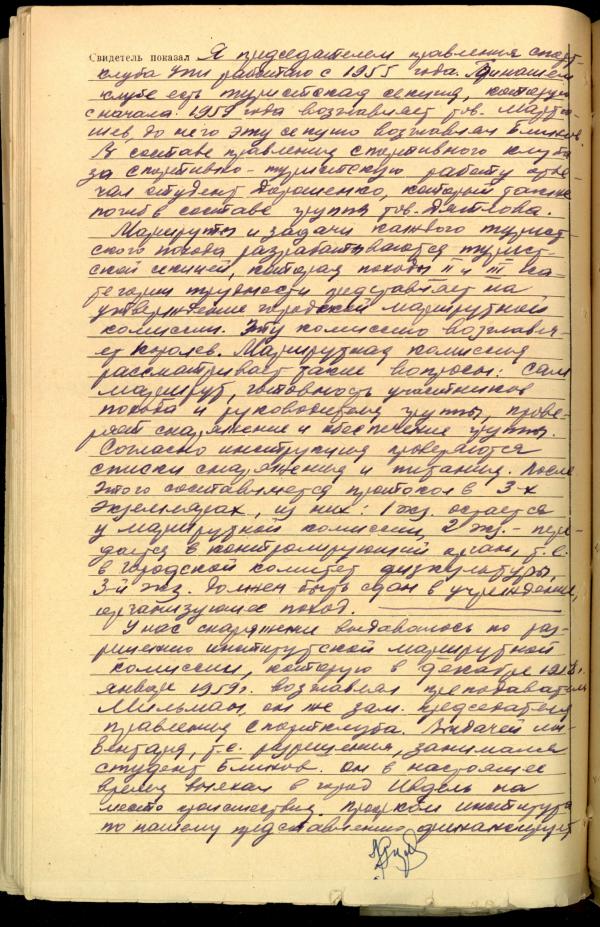 Свидетель показал Я председателем правления спорт-
клуба УПИ работаю с 1955 года. При нашем
клубе есть туристская секция, которую
с начала 1959 года возглавляет тов.
шев до него эту секцию возглавлял Блинов.
В составе правления спортивного клуба
за спортивно-туристскую работу отве-
чал студент Дорошенко, который также
погиб в составе группы тов. Дятлова.
Маршруты и задачи каждого турист-
ского похода разрабатываются турист-
ской секцией, которая походы II и III ка-
тегории трудности представляет на
утверждение городской маршрутной
комиссии. Эту комиссию возглавля-
ет Королев. Маршрутная комиссия
рассматривает такие вопросы: сам
маршрут, готовность участников
похода и руководителя группы, прове-
ряет снаряжение и обеспечение группы.
Согласно инструкции проверяются
списки снаряжения и питания. После
этого составляется протокол в 3-х
экземплярах, из них: 1 экз. остается
у маршрутной комиссии, 2 экз. - пере-
дается в контролирующий орган, т.е.
в городской комитет физкультуры,
3-й экз. должен быть сдан в учреждение,
организующее поход.
У нас снаряжение выдавалось по раз-
решению институтской маршрутной
комиссии, которую в декабре 1958 г.
январе 1959 г. возглавлял преподаватель
Мильман, он же зам. председателя
правления спортклуба. Выдачей ин-
вентаря, т.е. разрешения, занимался
студент Блинов. Он в настоящее
время выехал в город Ивдель на
место происшествия. Профком института
по нашему представлению финансирует